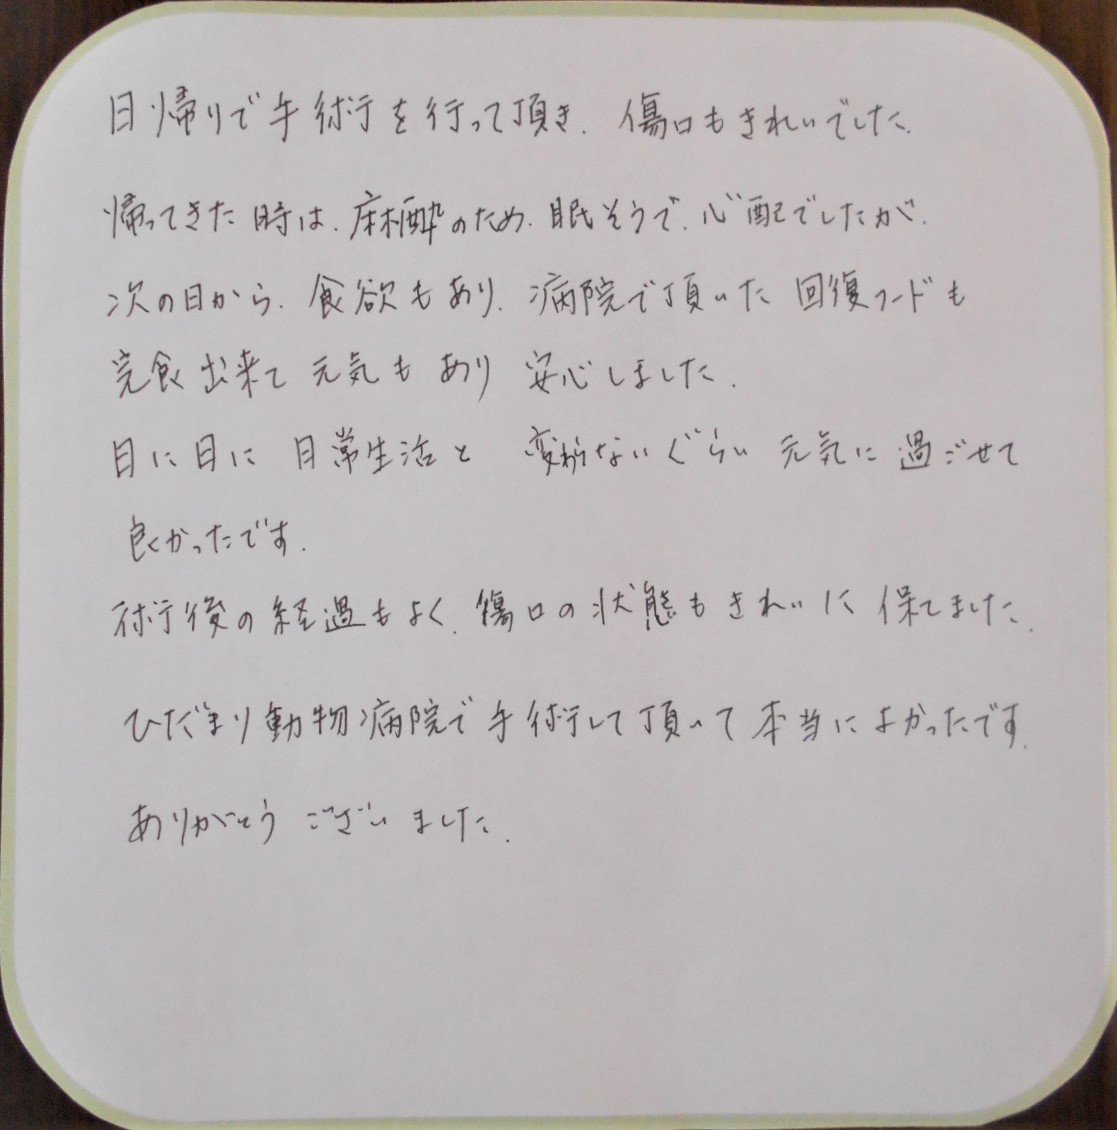 日帰りで手術を行って頂き、傷口もきれいでした。
帰ってきた時は、麻酔のため、眠そうで、心配でしたが、
次の日から、食欲もあり、病院で頂いた回復フードも
完食出来て元気もあり安心しました。
日に日に日常生活と変わらないぐらい元気に過ごせて
良かったです。
術後の経過もよく、傷口の状態もきれいに保てました。
ひだまり動物病院で手術して頂いて本当によかったです。
ありがとうございました。